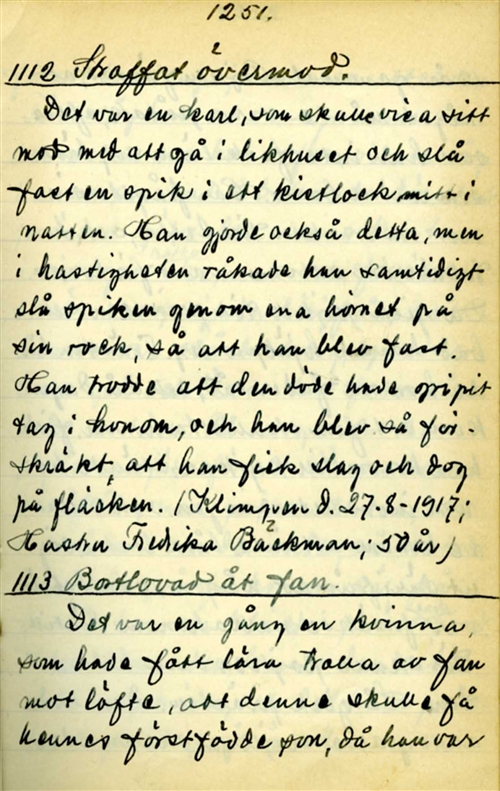 1251.
1112 Straffat övermod.
Det var en karl, som skulle visa sitt
mod med att gå i likhuset och slå
fast en spik i ett kistlock mitt i
natten. Han gjorde också detta, men
i hastigheten råkade han samtidigt
slå spiken genom ena hörnet på
sin rock, så att han blev fast.
Han trodde att den döde hade gripit
tag i honom, och han blev så för-
skräkt, att han fick slag och dog
på fläcken. (Klimpen d. 27-8-1917;
Fredrika Bäckman; 50 år)
1113 Bortlovad åt fan.
Det var en gång en kvinna,
som hade fått lära trolla av fan
mot löfte, att denne skulle få
hennes förstfödde son, då han var